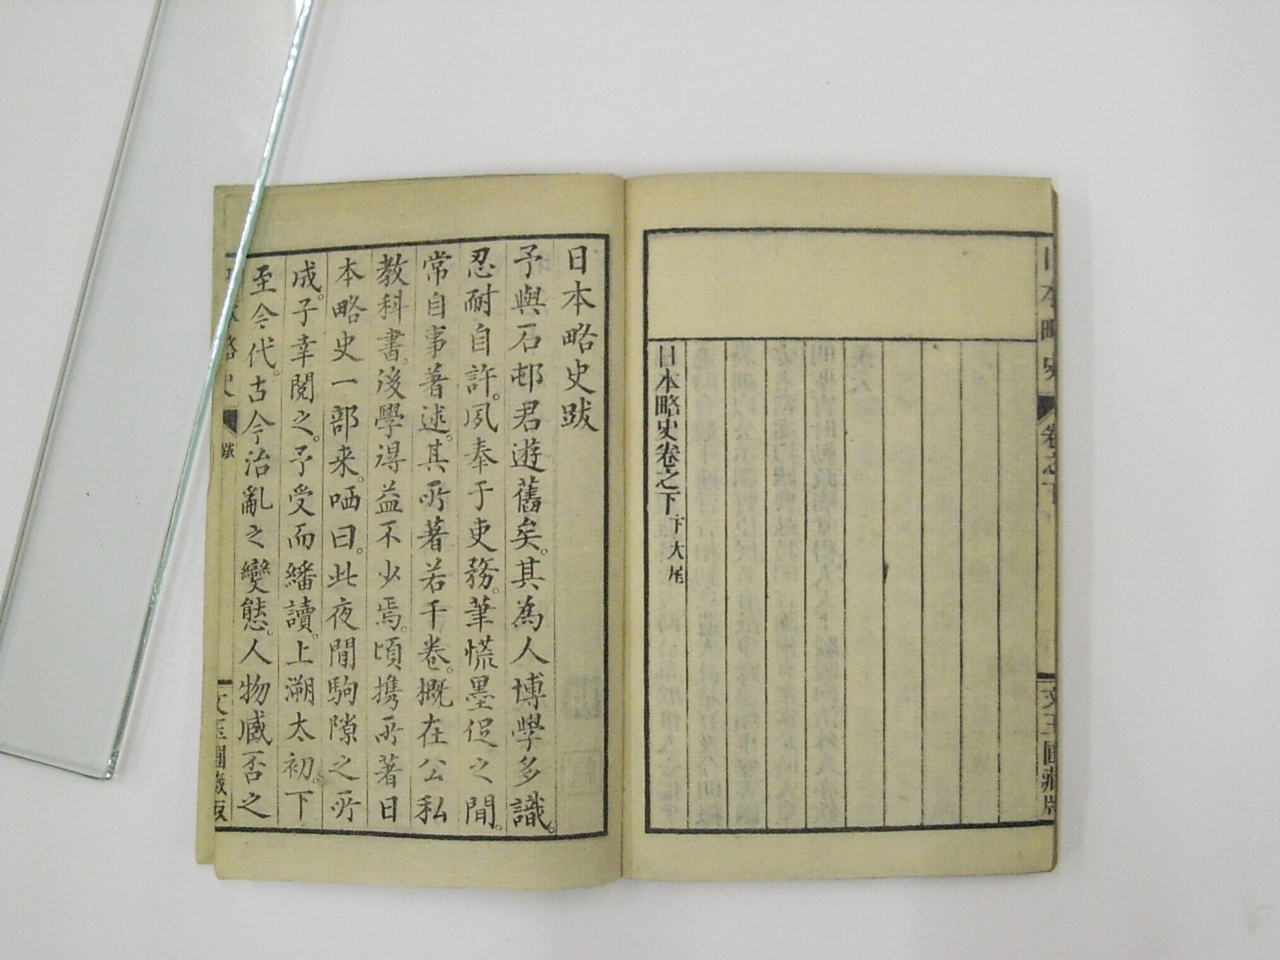 日本略史
卷之下
文玉圃藏版
日本略史卷之下大尾
日本略史跋
予與石邨君遊舊矣。其為人博學多識。
忍耐自許。夙奉于吏務。筆慌墨促之間。
常自事著述。其所著若干卷。概在公私
教科書。後學得益不少焉。頃携所著日
本略史一部来。哂曰。此夜間駒隙之所
成。子幸閱之。予受而繙讀。上溯太初。下
至今代。古今治亂之變態。人物臧否之
略史
跋
文玉圃藏版